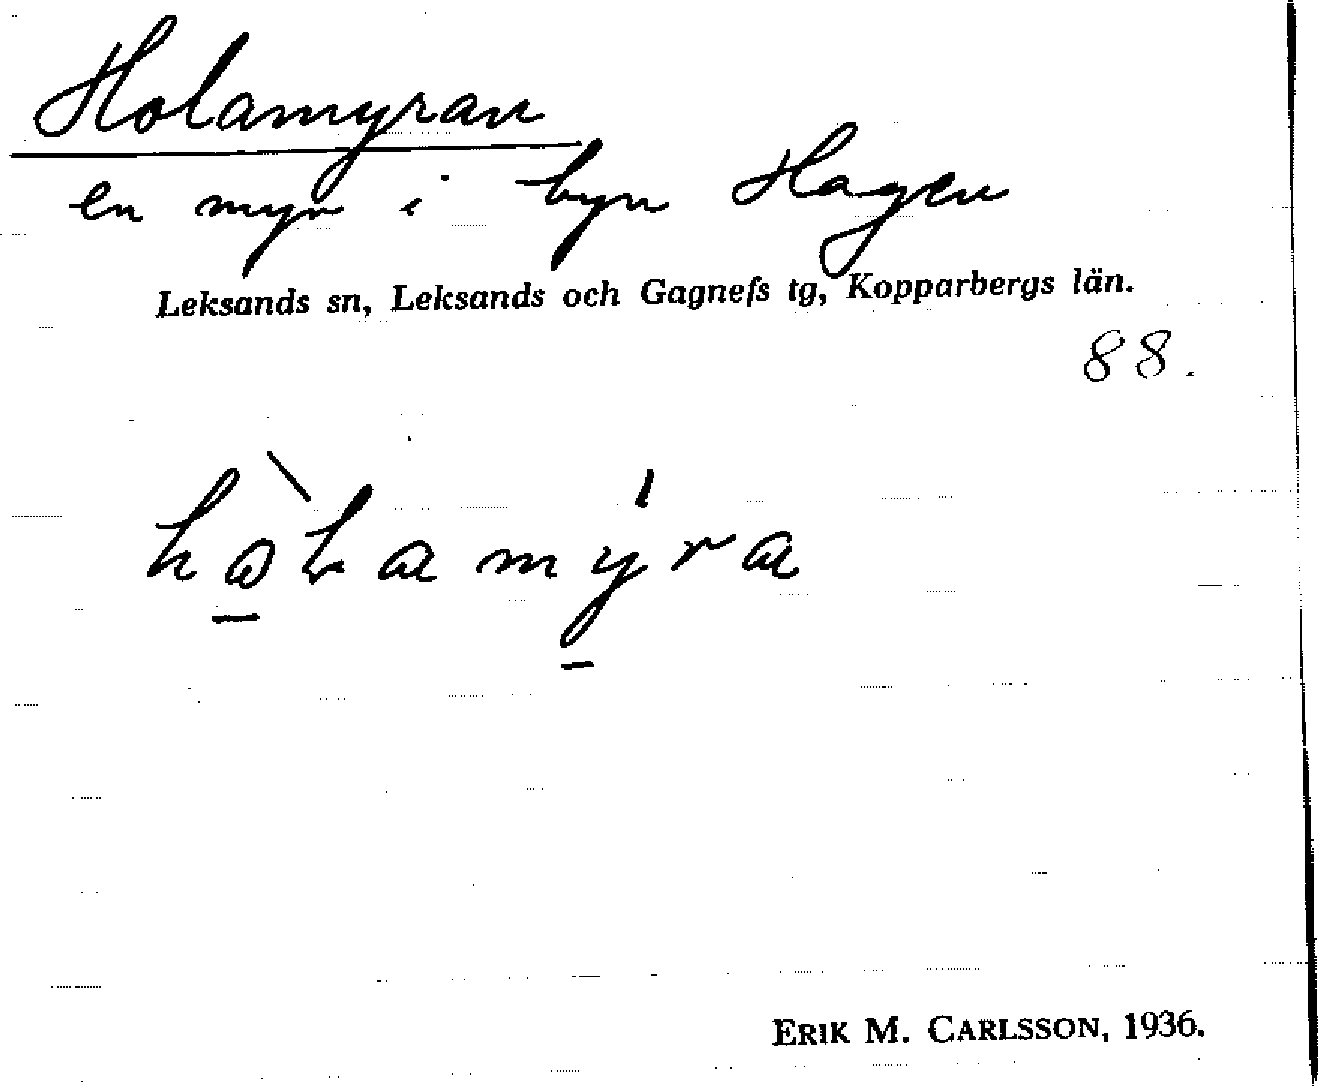 Holamyran
en myr i byn Hagen
Leksands sn, Leksands och Gagnefs tg, Kopparbergs län.
88.
ERIK M. CARLSSON, 1936.